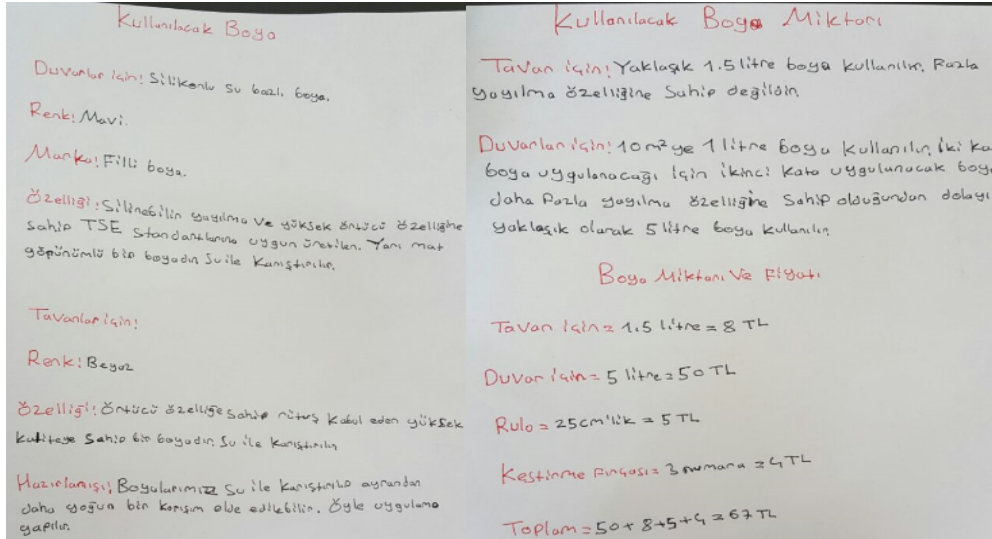 Kullanılacak Boya
Duvarlar için: Silikonlu su bazlı boya.
Renk: Mavi.
Marka: Filli boya.
Özelliği: Silinebilir yayılma ve yüksek örtücü özelliğine
sahip TSE standartlarına uygun üretilen. Yarı mat
görünümlü bir boyadır. Su ile karıştırılır.
Tavanlar için:
Renk: Beyaz
Özelliği: Örtücü özelliğe sahip rütuş kabul eden yüksek
kaliteye sahip bir boyadır. Su ile karıştırılır.
Hazırlanışı: Boyalarımız su ile karıştırılıp ayrandan
daha yoğun bir karışım elde edilebilir. Öyle uygulama
yapılır.
Kullanılacak Boya Miktarı
Tavan için: Yaklaşık 1.5 litre boya kullanılır. Fazla
yayılma özelliğine sahip değildir.
Duvarlar için: 10 m² ye 1 litre boya kullanılır. İki ka
boya uygulanacağı için ikinci kata uygulanacak boya
daha fazla yayılma özelliğine sahip olduğundan dolayı
yaklaşık olarak 5 litre boya kullanılır.
Boya Miktarı Ve Fiyatı
Tavan için = 1.5 litre = 8 TL
Duvar için = 5 litre = 50 TL
Rulo = 25cm'lik = 5 TL
Kestirme Fırçası = 3 numara = 4 TL
Toplam = 50 + 8 + 5 + 4 = 67 TL